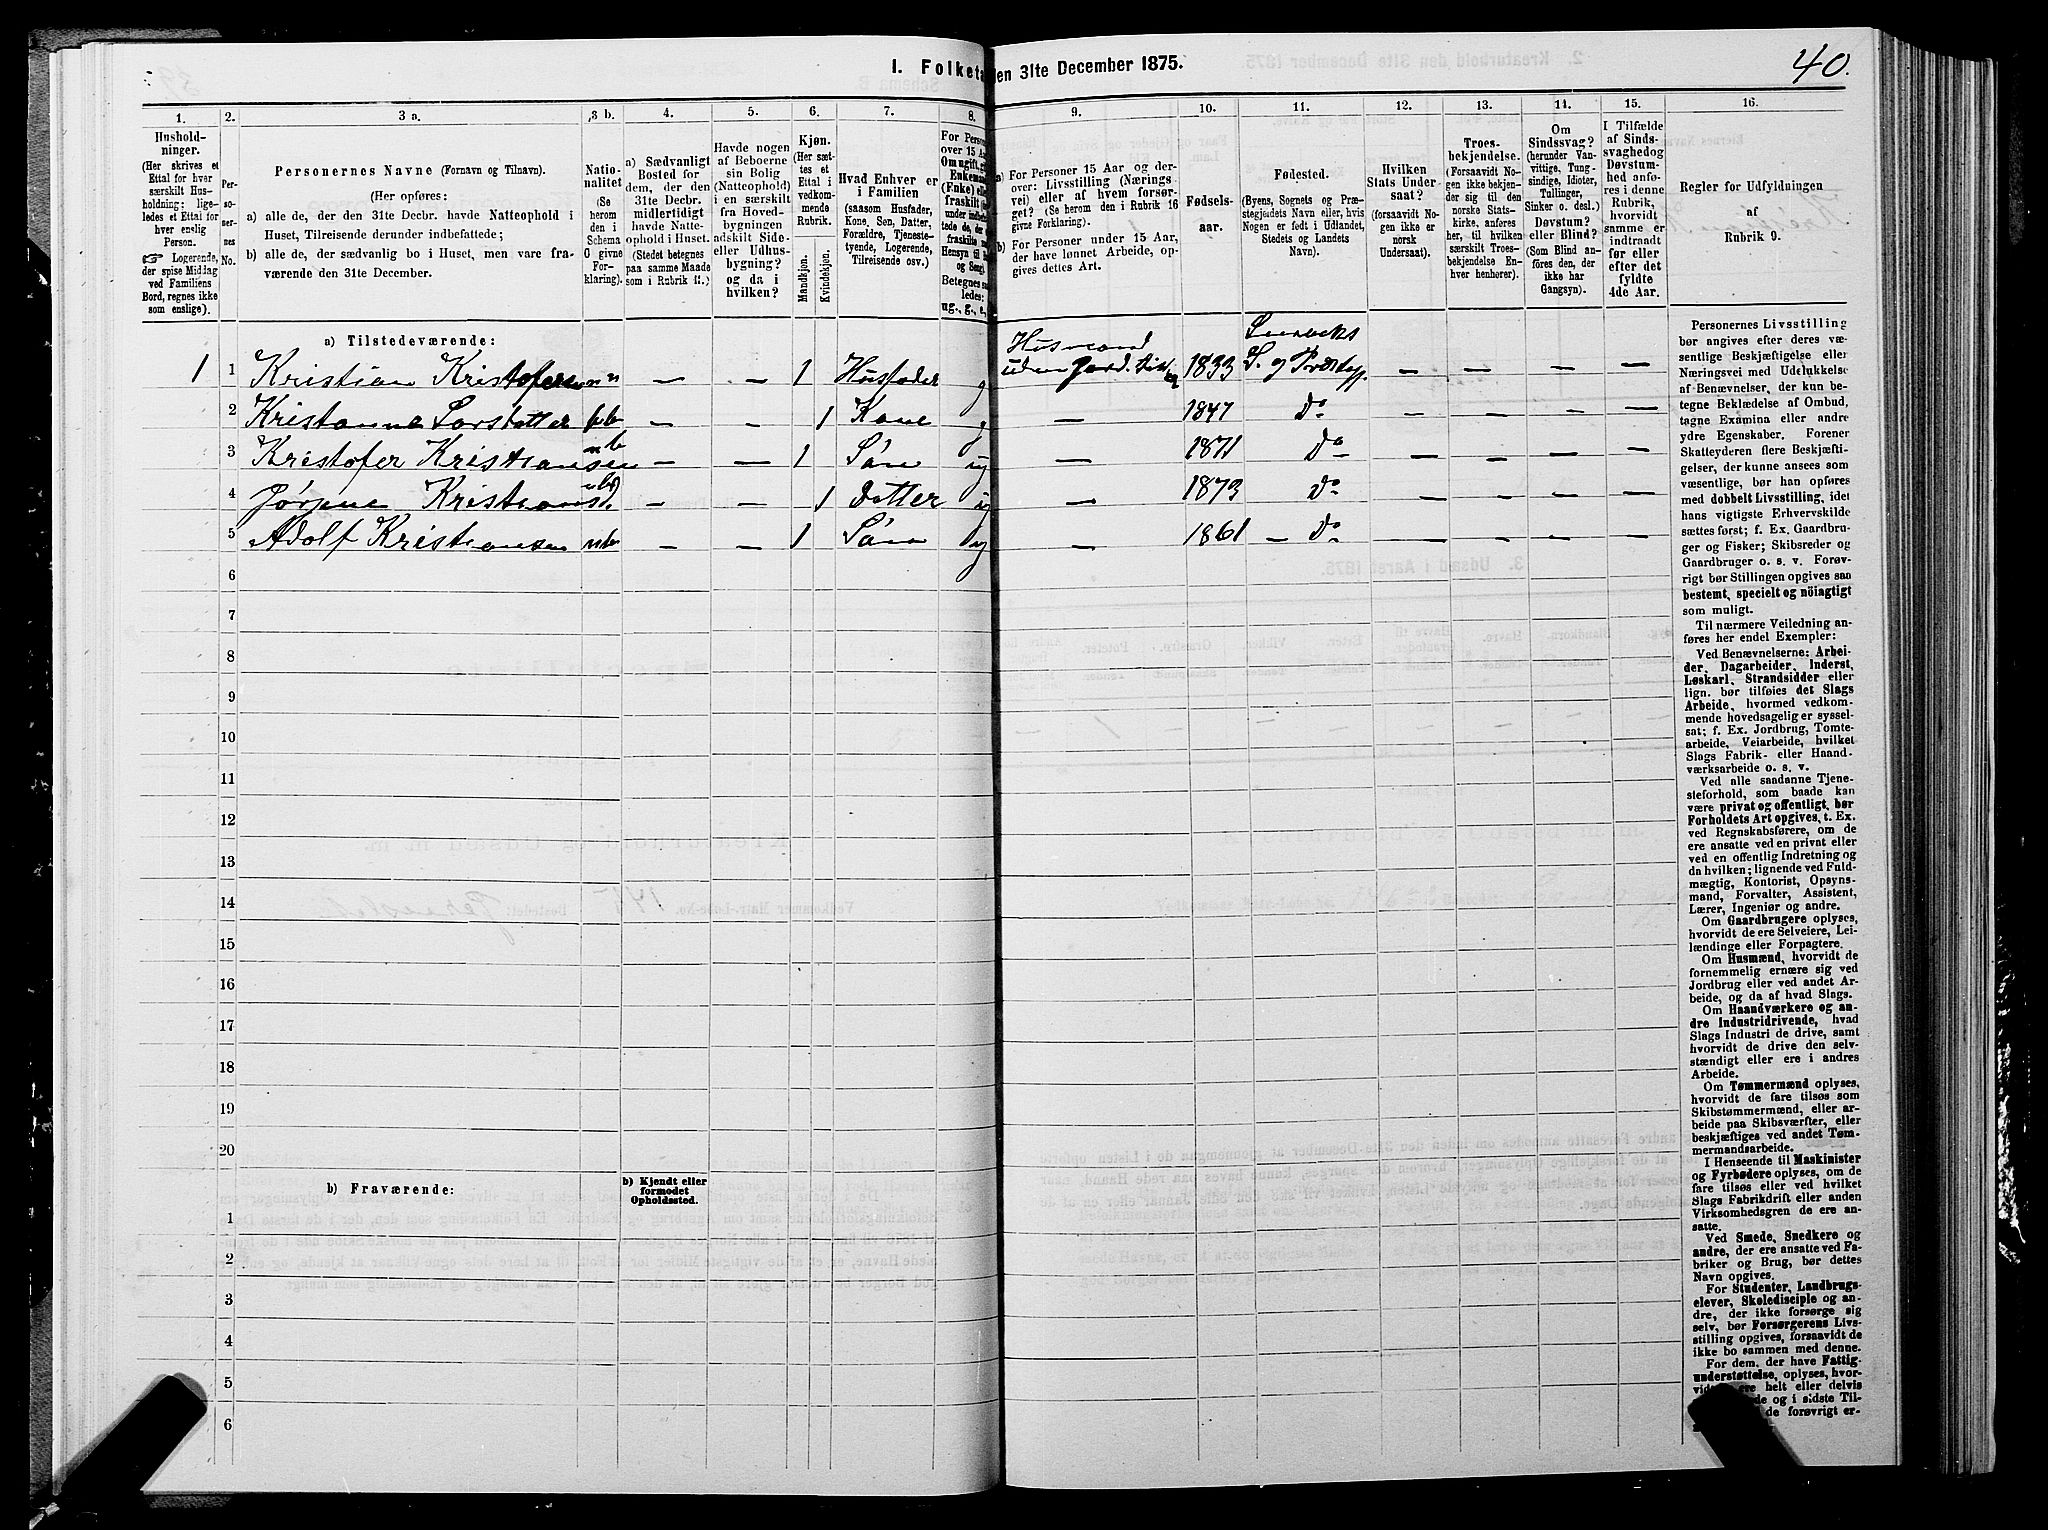 40.
I. Folketa
en 31te December 1875.
1. 2. 3 a. 3 b. 4. 5. 6. 7. 8. 9. 10. 11. 12. 13. 14. 15. 16.
Hushold-
ninger.
(Her skrives et
Ettal for hver
særskilt Hus-
holdning; lige-
ledes et Ettal for
hver enslig
Person.
Logerende,
der spise Middag
ved Familiens
Bord, regnes ikke
som enslige).
Per-
soner-
nes
No.
Personernes Navne (Fornavn og Tilnavn).
(Her opføres:
a) alle de, der den 31te Decbr. havde Natteophold i
Huset, Tilreisende derunder indbefattede;
b) alle de, der sædvanlig bo i Huset, men vare fra-
værende den 31te December.
Natio-
nalitet
(Se
herom
den i
Schema
C givne
For-
klaring).
a) Sædvanligt
Bosted for
dem, der den
31te Decbr.
midlertidigt
havde Natte-
ophold i Huset.
(Stedet betegnes
paa samme Maade
som i Rubrik 11.)
Havde nogen
af Beboerne
sin Bolig
(Natteophold)
i en særskilt
fra Hoved-
bygningen
adskilt Side-
eller Udhus-
bygning?
og da i
hvilken?
Kjøn.
(Her sæt-
tes et
Ettal i
vedkom-
mende
Rubrik.
Mandkjøn.
Kvindekjøn.
Hvad Enhver er
i Familien
(saasom Husfader,
Kone, Søn, Datter,
Forældre, Tjeneste-
tyende, Logerende,
Tilreisende osv.)
For Perso
over 15 A
Om ugift, gi
Enkeman
(Enke) elle
fraskilt
Betegnes sa
ledes:
ug., g., e.,
a) For Personer 15 Aar og der-
over: Livsstilling (Nærings-
vei) eller af hvem forsør-
get? (Se herom den i Rubrik 16
givne Forklaring).
b) For Personer under 15 Aar,
der have lønnet Arbeide, op-
gives dettes Art.
Fødsels-
aar.
Fødested.
(Byens, Sognets og Præ-
stegjeldets Navn eller, hvis
Nogen er født i Udlandet,
Stedets og Landets
Navn).
Hvilken
Stats Under-
saat?
(forsaavidt No-
gen ikke er
norsk
Undersaat).
Troes-
bekjendelse.
(Forsaavidt No-
gen ikke bekjen-
der sig til den
norske Stats-
kirke, anføres
her, til hvilken
særskilt Troes-
bekjendelse En-
hver henhører).
Om
Sindssvag?
(herunder Van-
vittige, Tung-
sindige, Idioter,
Tullinger,
Sinker o. desl.)
Døvstum?
eller Blind?
(Som Blind an-
føres den, der
ikke har
Gangsyn).
I Tilfælde
af Sinds-
svaghed og
Døvstum-
hed anfø-
res i denne
Rubrik,
hvorvidt
samme er
indtraadt
før eller
efter det
fyldte
4de Aar.
Regler for Udfyldningen
af
Rubrik 9.
a) Tilstedeværende:
1 1 Kristian Kristofersen n 1 Husfader g Husmand uden Jord. 1833 S. og Præstegj.
2 Kristanne Larsdatter 1 Kone g 1847 Do
3 Kristofer Kristiansen 1 Søn ug 1871 Do
4 Jørgine Kristiansd. 1 Datter ug 1873 Do
5 Adolf Kristiansen 1 Søn ug 1861 Do
6
7
8
9
10
11
12
13
14
15
16
17
18
19
20
b) Fraværende:
b) Kjendt eller
formodet
Opholdssted.
1
2
3
4
5
6
Personernes Livsstilling
bør angives efter deres væ-
sentlige Beskjæftigelse eller
Næringsvei med Udelukkelse
af Benævnelser, der kun be-
tegne Beklædelse af Ombud,
tagne Examina eller andre
ydre Egenskaber. Forener
Skatteyderen flere Beskjæfti-
gelser, der kunne ansees som
væsentlige, bør han opføres
med dobbelt Livsstilling, idet
hans vigtigste Erhvervskilde
sættes først; f. Ex. Gaardbru-
ger og Fisker; Skibsreder og
Gaardbruger o. s. v. Forøv-
rigt bør Stillingen opgives saa
bestemt, specielt og nöiagtigt
som muligt.
Til nærmere Veiledning an-
føres her endel Exempler:
Ved Benævnelserne: Arbei-
der, Dagarbeider, Inderst,
Løskarl, Strandsidder eller
lign. bør tilføies det Slags
Arbeide, hvormed vedkom-
mende hovedsagelig er syssel-
sat; f. Ex. Jordbrug, Tomte-
arbeide, Veiarbeide, hvilket
Slags Fabrik- eller Haand-
værksarbeide o. s. v.
Ved alle saadanne Tjene-
steforhold, som baade kan
være privat og offentligt, bør
Forholdets Art opgives, t. Ex.
ved Regnskabsførere, om de
ere ansatte ved en privat eller
ved en offentlig Indretning og
da hvilken; lignende ved Fuld-
mægtig, Kontorist, Opsyns-
mand, Forvalter, Assistent,
Lærer, Ingeniør og andre.
Om Gaardbrugere oplyses,
hvorvidt de ere Selveiere, Lei-
lændinge eller Forpagtere.
Om Husmænd, hvorvidt de
fornemmelig ernære sig ved
Jordbrug eller ved andet Ar-
beide, og da af hvad Slags.
Om Haandværkere og an-
dre Industridrivende, hvad
Slags Industri de drive, samt
hvorvidt de drive den selv-
stændigt eller ere i andres
Arbeide.
Om Tømmermænd oplyses,
hvorvidt de fare tilsøs som
Skibstømmermænd, eller ar-
beide paa Skibsværfter, eller
beskjæftiges ved andet Tøm-
mermandsarbeide.
I Henseende til Maskinister
og Fyrbødere oplyses, om de
fare tilsøs eller ved hvilket
Slags Fabrikdrift eller anden
Virksomhedsgren de ere an-
satte.
Ved Smede, Snedkere og
andre, der ere ansatte ved Fa-
briker og Brug, bør dettes
Navn opgives.
For Studenter, Landbrugs-
elever, Skoledisciple og an-
dre, der ikke forsørge sig
selv, bør Forsørgerens Livs-
stilling opgives, forsaavidt de
ikke bo sammen med denne.
For dem, der have Fattig-
understøttelse, oplyses, hvor-
helt eller delvis
de og i sidste Til-
de forøvrigt er-